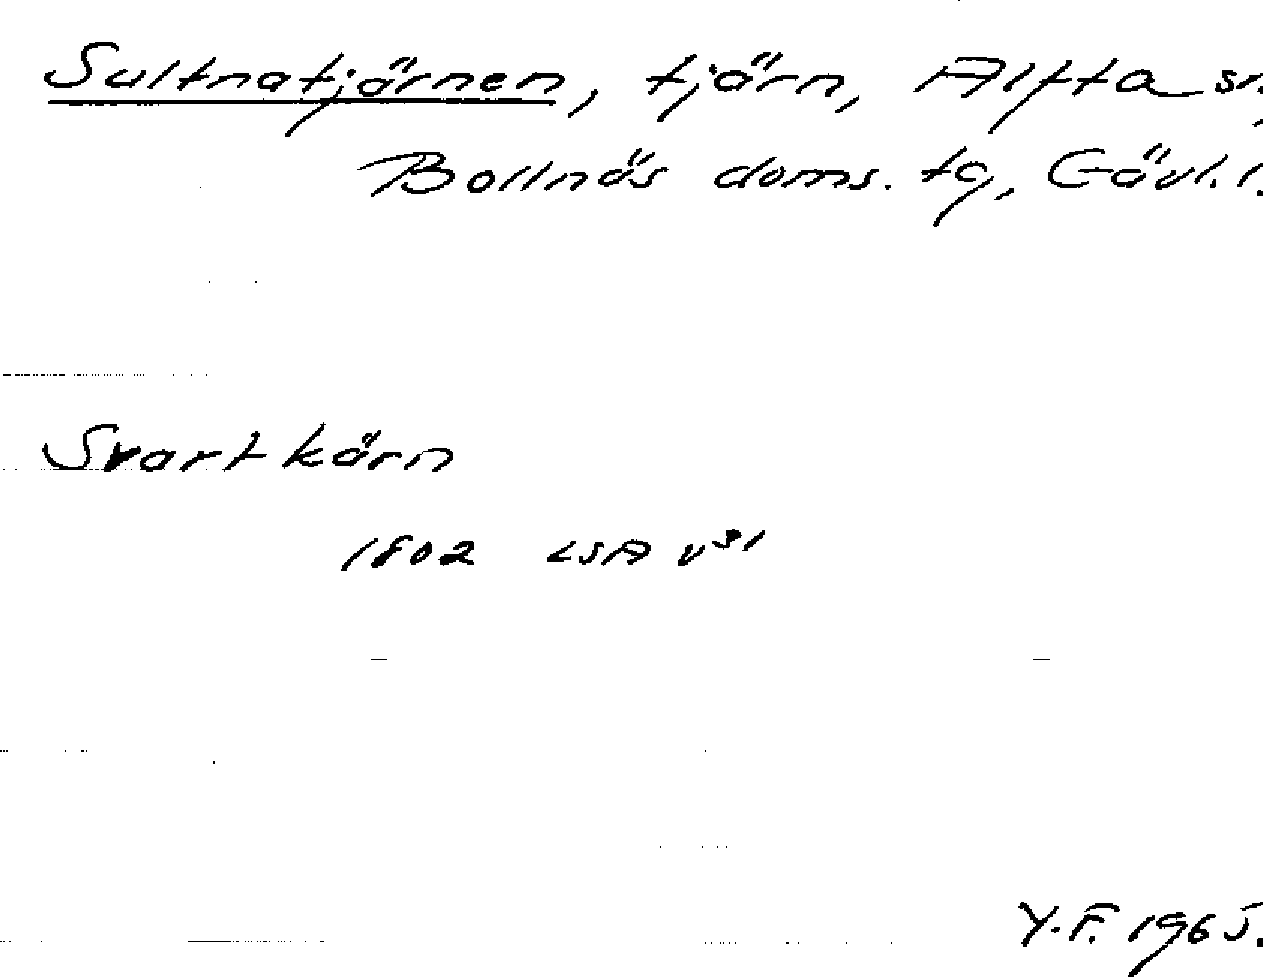 Sultnatjärnen, tjärn, Alfta sn,
Bollnäs doms. tg, Gävl. l.
Svartkärn
1802 LSA v31
Y.F. 1965.